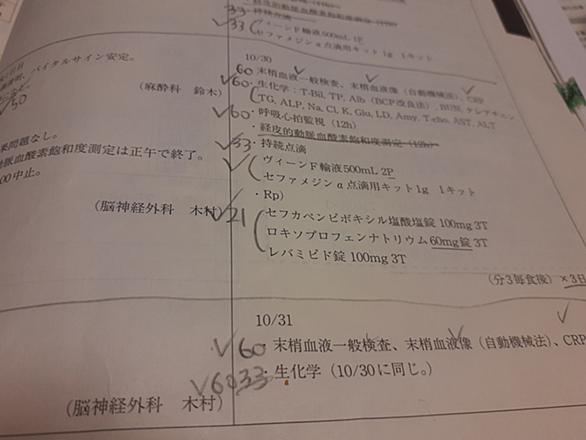 33 ・持続点滴
33 ヴィーンF輸液500mL 1P
セファメジンα点滴用キット 1g 1キット
バイタルサイン安定。
50
(麻酔科 鈴木)
来問題なし。
動脈血酸素飽和度測定は正午で終了。
00中止。
(脳神経外科 木村)
10/30
60 末梢血液一般検査、末梢血液像(自動機械法)、CRP
60 ・生化学:T-Bil, TP, Alb(BCP改良法), BUN, クレアチニン
TG, ALP, Na, Cl, K, Glu, LD, Amy, T-cho, AST, ALT
60 ・呼吸心拍監視(12h)
・経皮的動脈血酸素飽和度測定(12h)
33 ・持続点滴
ヴィーンF輸液500mL 2P
セファメジンα点滴用キット1g 1キット
・Rp)
21 セフカペンピボキシル塩酸塩錠 100mg 3T
ロキソプロフェンナトリウム60mg錠 3T
レバミピド錠 100mg 3T
(分3毎食後)×3日
10/31
60 ・末梢血液一般検査、末梢血液像(自動機械法)、CRP
60 33 ・生化学(10/30に同じ。)
(脳神経外科 木村)